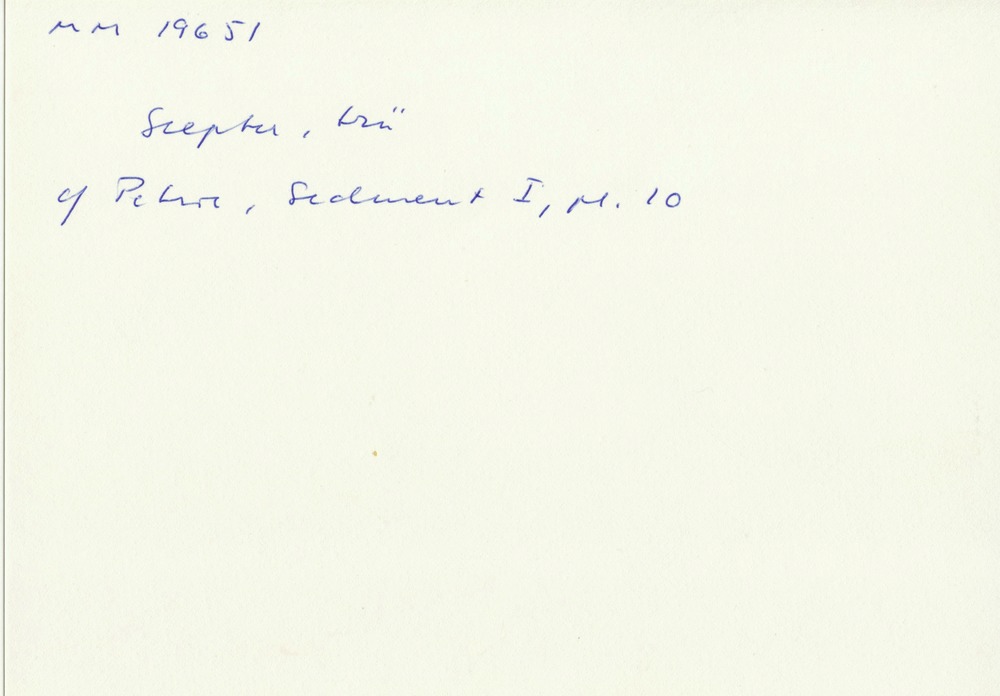 MM 19651
Scepter, trä
cf Petrie, Sedment I, pl. 10